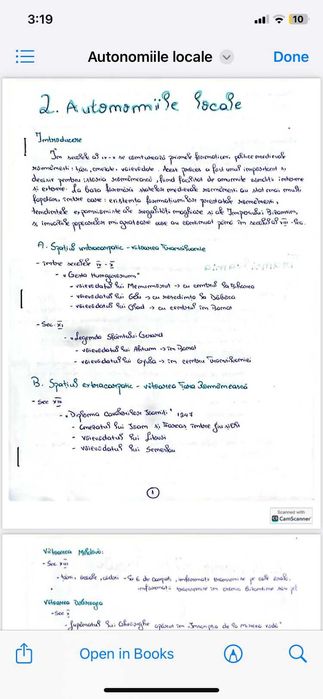 3:19
10
Autonomiile locale
Done
2. Autonomiile locale
Introducere
În secolele al se conturează primele formațiuni politice medievale
românești: țări, cnezate, voievodate. Acest proces a fost unul important și
decisiv pentru istoria românească, fiind facilitat de anumite condiții interne
și externe. La baza formării statelor medievale românești au stat mai mulți
factori, între care: existența formațiunilor prestatale românești,
tendințele expansioniste ale regalității maghiare și ale Imperiului Bizantin,
și invaziile popoarelor migratoare care au continuat până în secolul al XIII-lea.
A. Spațiul intracarpatic - viitoarea Transilvanie
- între secolele IX - X
- "Gesta Hungarorum"
- voievodatul lui Menumorut -> cu centrul la Biharea
- voievodatul lui Gelu -> cu reședința la Dăbâca
- voievodatul lui Glad -> cu centrul în Banat
- Sec. XI
- Legenda Sfântului Gerard
- voievodatul lui Ahtum -> în Banat
- voievodatul lui Gyula -> în centrul Transilvaniei
B. Spațiul extracarpatic - viitoarea Țara Românească
- Sec XIII
- "Diploma Cavalerilor Ioaniți" 1247
- cnezatul lui Ioan și Farcaș între Jiu și Olt
- voievodatul lui Litovoi
- voievodatul lui Seneslau
1
Scanned with
CamScanner
Viitoarea Moldovă:
- Sec XIII
- țări, ocoale, codri
Viitoarea Dobrogea
- Sec X
- Jupânatul lui Gheorghe apărut în
Open in Books